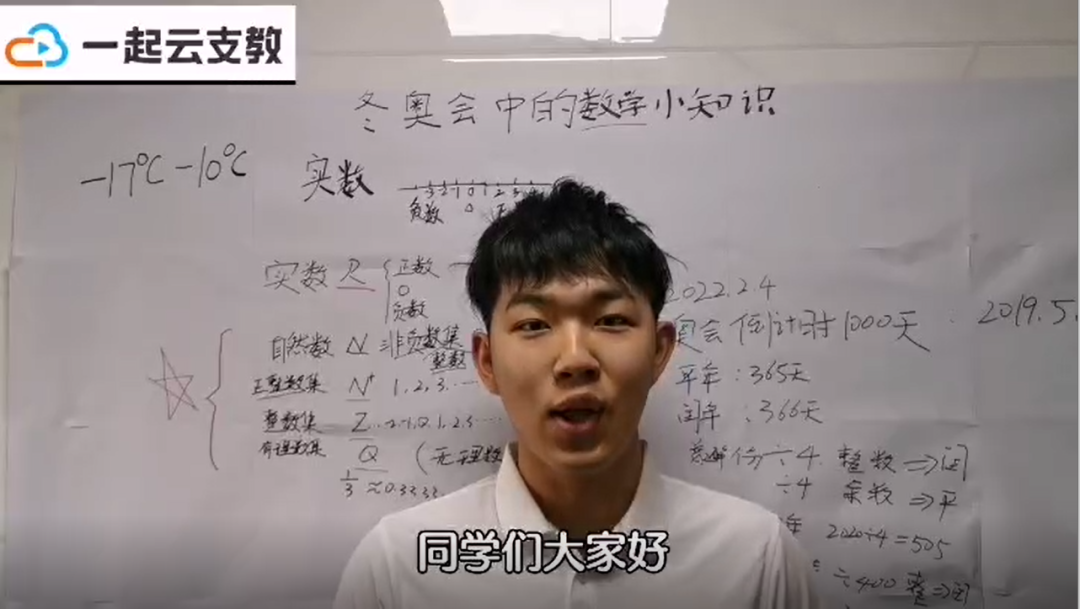 一起云支教
冬奥会中的数学小知识
-17℃ -10℃
实数
-3 -2 -1 0 1 2 3
负数 0 正
实数 R { 正数
0
负数
自然数 N 非负数集
整数
正整数集 N⁺ 1, 2, 3, ……
整数集 Z …-2, -1, 0, 1, 2, 3 ……
有理数集 Q (无理数
1/3 ≈ 0.3333
2022.2.4
奥会倒计时1000天
2019.5.
平年:365天
闰年:366天
份÷4 整数⇒闰
÷4 余数⇒平
年 2020÷4=505
÷400 整⇒闰
同学们大家好